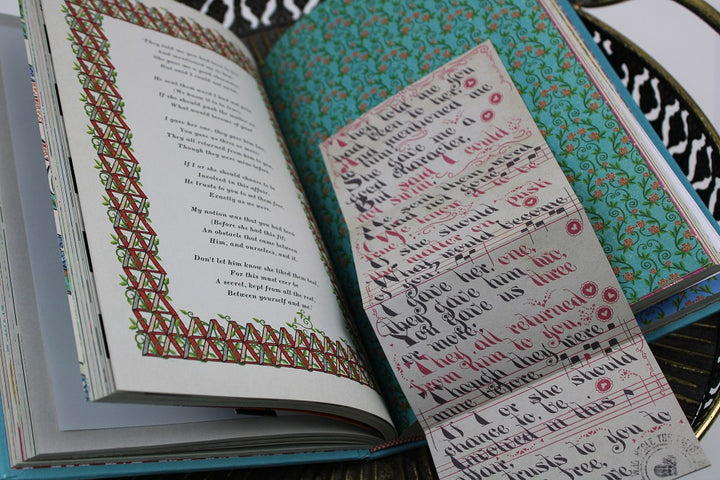 'They told me you had been to her,
And mentioned me to him:
She gave me a good character,
But said I could not swim.
He sent them word I had not gone
(We know it to be true):
If she should push the matter on,
What would become of you?
I gave her one, they gave him two,
You gave us three or more;
They all returned from him to you,
Though they were mine before.
If I or she should chance to be
Involved in this affair,
He trusts to you to set them free,
Exactly as we were.
My notion was that you had been
(Before she had this fit)
An obstacle that came between
Him, and ourselves, and it.
Don't let him know she liked them best,
For this must ever be
A secret, kept from all the rest,
Between yourself and me.'
They told me you
had been to her,
mentioned me
She gave me a
character,
said I could
not swim.
He sent them word
(We know
If she should push
the matter on
would become
I gave her one,
they gave him two,
You gave us three
or more;
They all returned
from him to you,
Though they were
mine before.
If I or she should
chance to be
involved in this
affair,
trusts to you to
free,